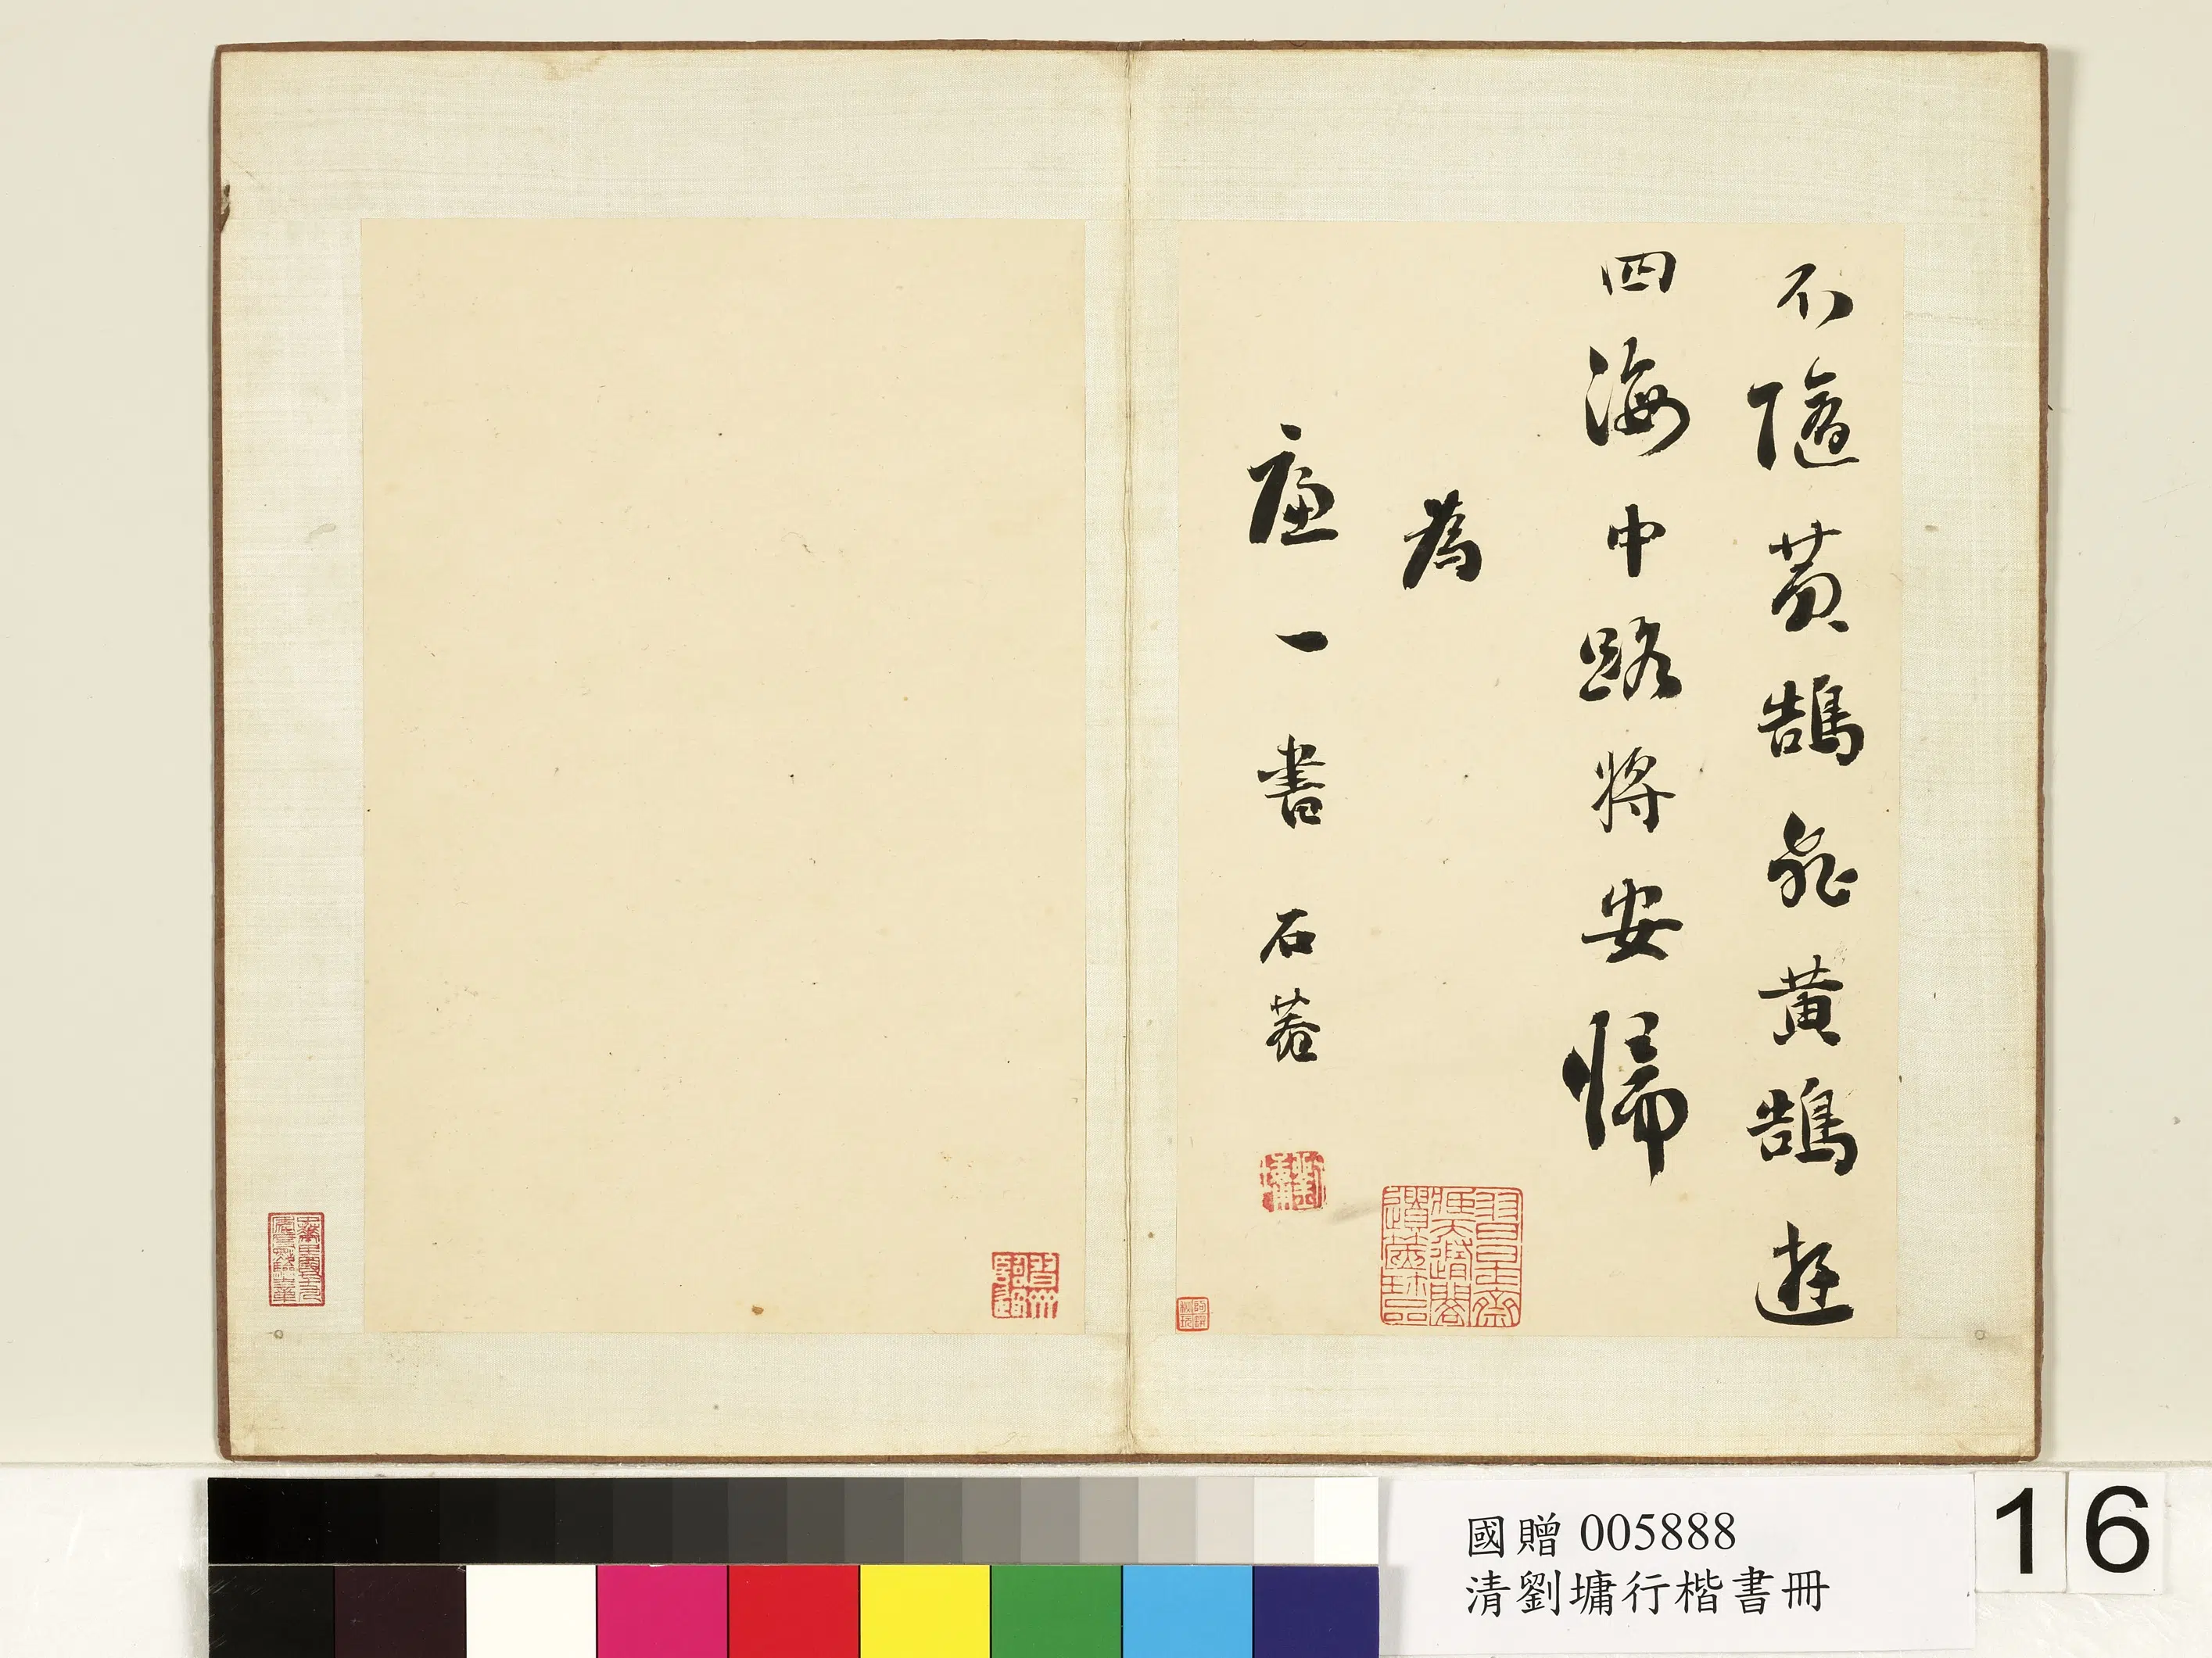 不隨黃鵠飛黃鵠遊
四海中路將安歸
為
一書 石菴
劉墉
國贈 005888
清劉墉行楷書冊
16